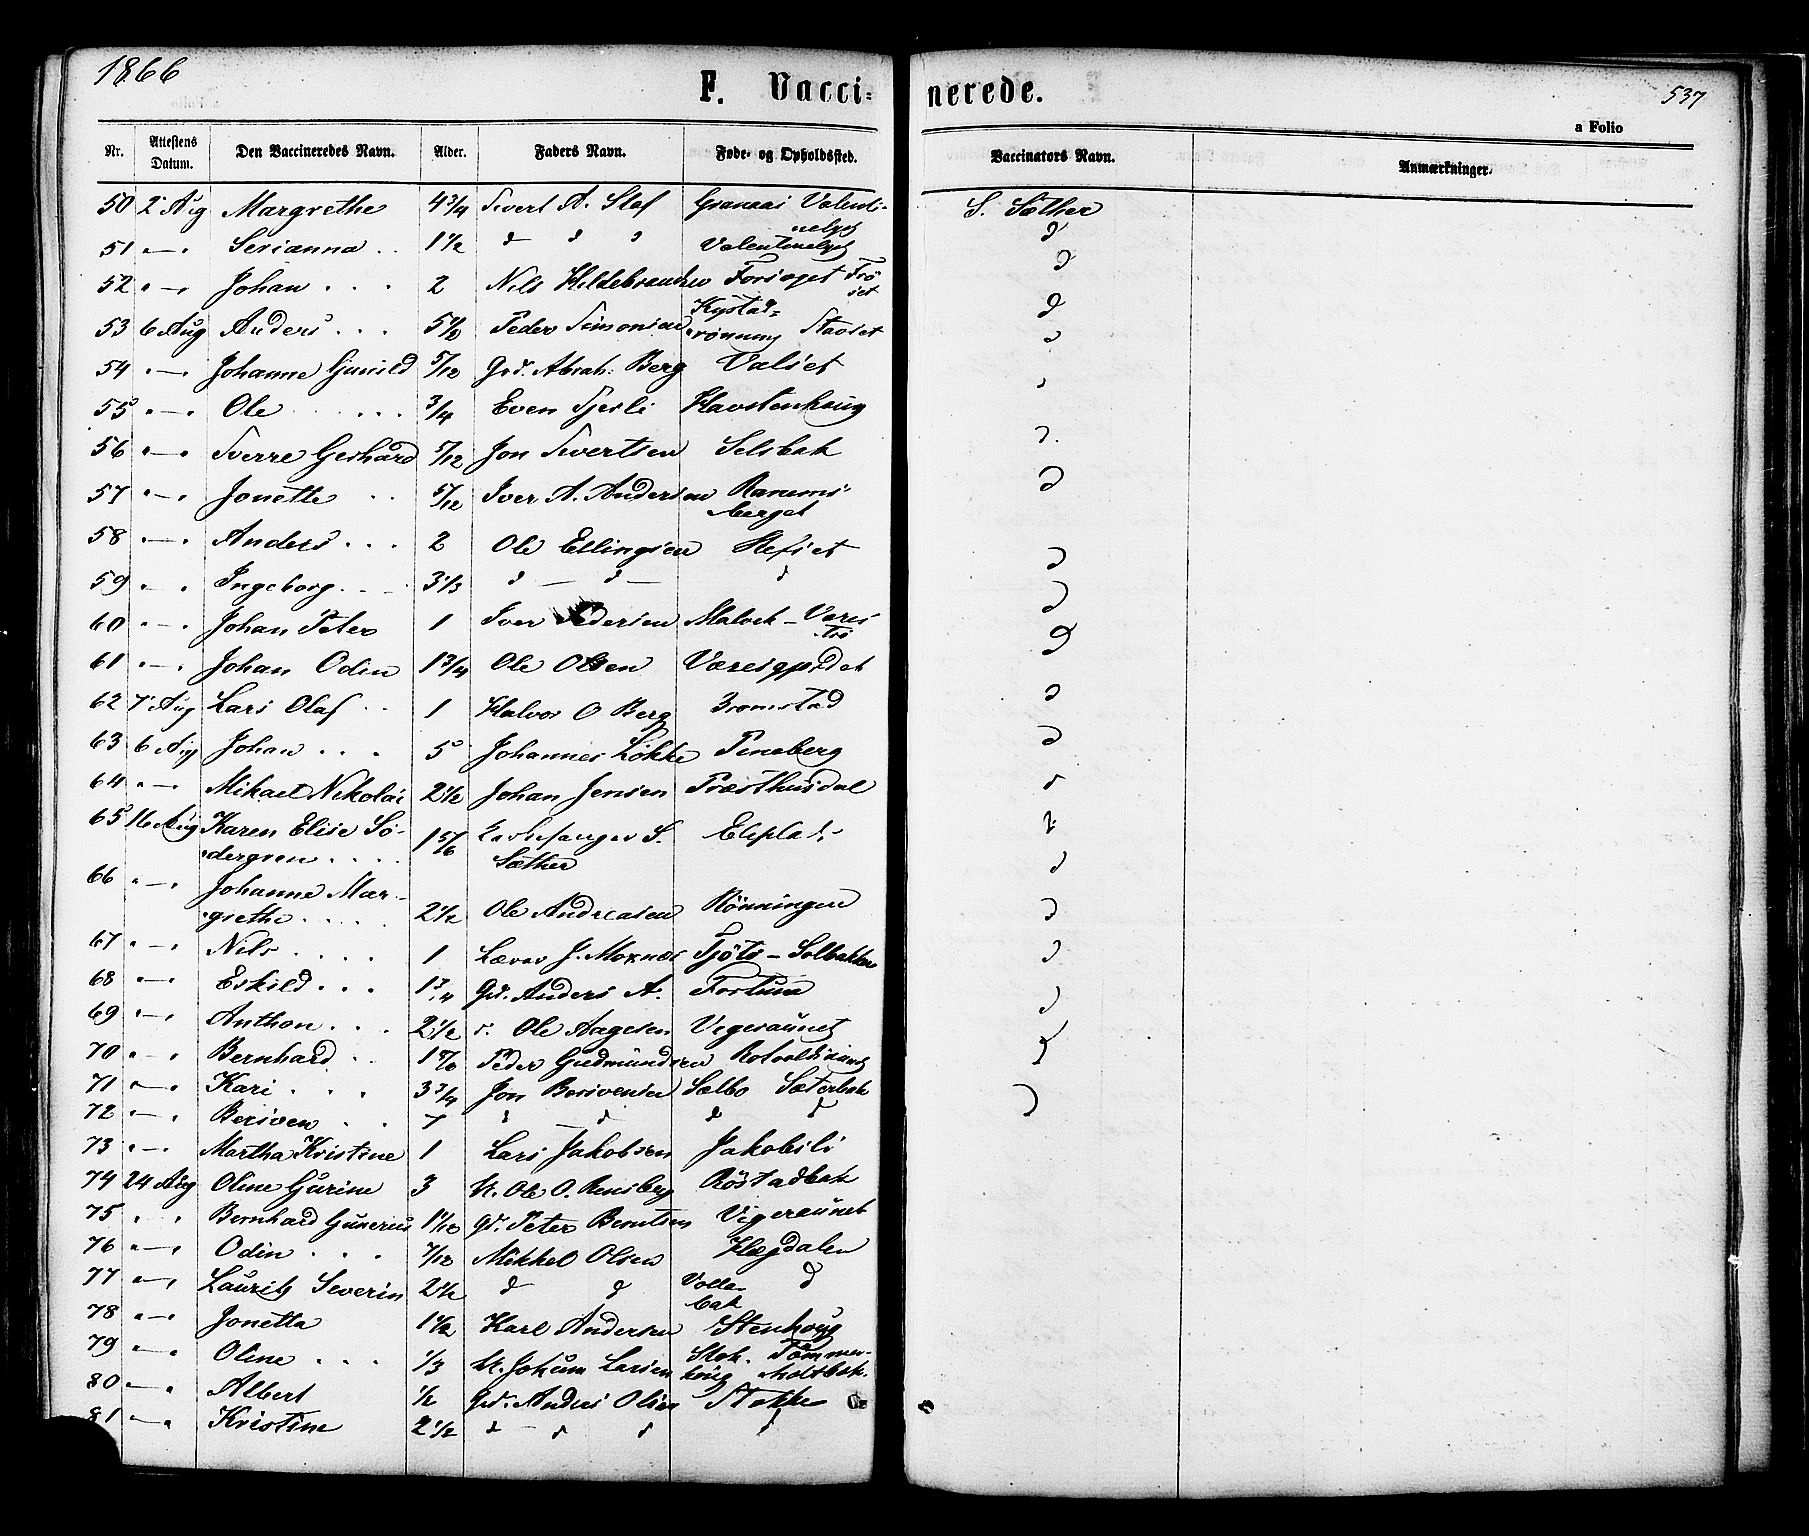 1866
F. Vacci-
nerede.
537
a Folio
Nr. Attestens Datum. Den Vaccineredes Navn. Alder. Faders Navn. Føde- og Opholdssted. Vaccinators Navn. Anmærkninger.
50 2 Aug Margrethe 4 3/4 Sivert A. Slaf Valenti- S. Sæther
nelyst
51 " — " Serianna . . 1 1/2 d d d Valentinelyst d
52 " — " Johan . . . 2 Nils Hildebrandsen d
53 6 Aug Anders . . . 5 1/2 Peder Simonsen rønning Stavset d
54 " — " Johanne Gunild 5/12 Grd. Abrah: Berg Valset
55 " — " Ole . . . . 3/4 Even Tjerli Havstenhaug
56 " — " Sverre Gerhard 5/12 Jon Sivertsen Selsbak d.
57 " — " Jonette . . 5/12 Iver A. Andersen Ranems- d
berget
58 " — " Anders . . . 2 Ole Ellingsen d
59 " — " Ingeborg . . . 3 1/3 d — d — d d
60 " — " Johan Peter 1 Iver Pedersen Malvik - Veres- d
61 " — " Johan Odin 1 3/4 Ole Olsen Væresgjerdet
62 7 Aug Lars Olaf . . 1 Halvor O Berg Bromstad d
63 6 Aug Johan . . . 5 Johannes Løkke Peneberg d
64 " — " Mikael Nikolai 2 1/2 Johan Jensen Præsthusdal
65 16 Aug Karen Elise Sö- 1 5/6 S.
dergren . . . . Sæther
66 " — " Johanne Mar-
grethe . . . . 2 1/2 Ole Andreasen Rönningen d
67 " — " Nils . . . . 1 J. Moxnes - Solbakken d
68 " — " Eskild . . . 1 3/4 Grd. Anders A. Fortuna
69 " — " Anthon . . . 2 1/2 Ole Aagesen Vegeraunet d
70 " — " Bernhard . . Peder Gudmundsen
71 " — " Kari . . . 3 3/4 Jon Berivensen Sælbo Sæterbak d
72 " — " Beriven . . 7 d — d d d
73 " — " Martha Kristine 1 Lars Jakobsen Jakobsli
74 24 Aug Oline Gurine 3 H. Ole O. Rensberg Röstadbak
75 " " Bernhard Gunerius 1 1/12 Grd. Peter Berntsen Vegeraunet
76 " — " Odin . . . 7/12 Mikkel Olsen Hægdalen
77 " — " Laurits Severin 2 1/2 d d Volla- d
bak
78 " — " Jonetta 1 1/2 Karl Andersen Stenhaug
79 " — " Oline . . . 1/3 H. Johan Larsen Tømmer-
haug Moltbak.
80 " — " Albert 1/2 Grd. Anders Olsen Stokke
81 " — " Kristine 2 1/2 d — d d d